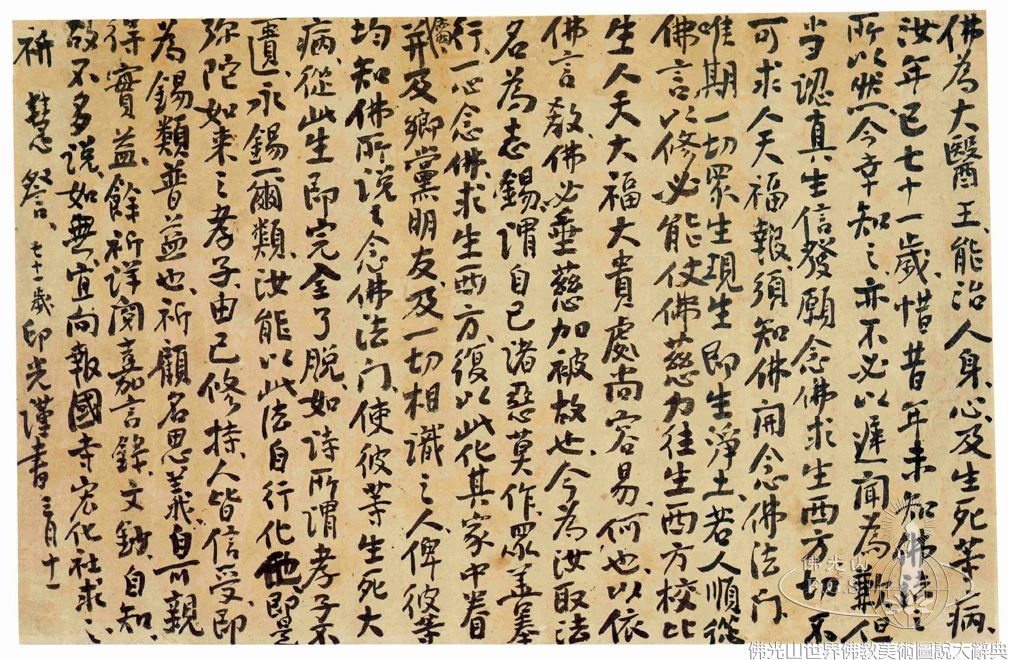 佛為大醫王、能治人身、心、及生死等病、
汝年已七十一歲、惜昔年未知佛法之
所以然、今幸知之、亦不必以遲聞為歉、但
当認真生信發願念佛求生西方、切不
可求人天福報、須知佛開念佛法門、
唯期一切眾生現生即生淨土、若人順從
佛言以修、必能仗佛慈力往生西方、校比
生人天大福大貴處、尚容易、何也、以依
佛言教、佛必垂慈加被故也、今為汝取法
名為志錫、謂自己諸惡莫作、眾善奉
行、一心念佛、求生西方、復以此化其家中眷
屬并及鄉黨朋友、及一切相識之人、俾彼等
均知佛所說之念佛法門、使彼等生死大
病、從此生即完全了脫、如詩所謂孝子不
匱、永錫爾類、汝能以此法自行化他、即是
弥陀如來之孝子、由己修持、人皆信受、即
為錫類普益也、祈顧名思義、自可親
得實益、餘祈詳閱嘉言錄、文鈔、自知、
故不多說、如無、宜向報國寺宏化社求之、
祈 慧詧、七十一歲 印光謹書 三月十一
佛光山
佛光山世界佛教美術圖說大辭典